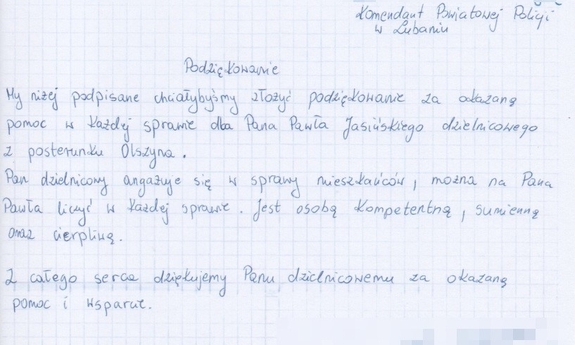 Komendant Powiatowej Policji
w Lubaniu
Podziękowanie
My niżej podpisane chciałybyśmy złożyć podziękowanie za okazaną
pomoc w każdej sprawie dla Pana Pawła Jasińskiego dzielnicowego
z posterunku Olszyna.
Pan dzielnicowy angażuje się w sprawy mieszkańców, można na Pana
Pawła liczyć w każdej sprawie. Jest osobą kompetentną, sumienną
oraz cierpliwą.
Z całego serca dziękujemy Panu dzielnicowemu za okazaną
pomoc i wsparcie.